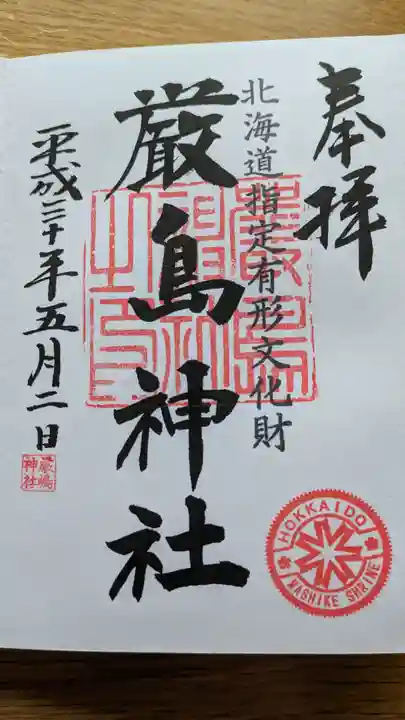 奉拝
北海道指定有形文化財
厳島神社
平成三十年五月二日
厳嶋
神社
HOKKAIDO
MASHIKE SHRINE